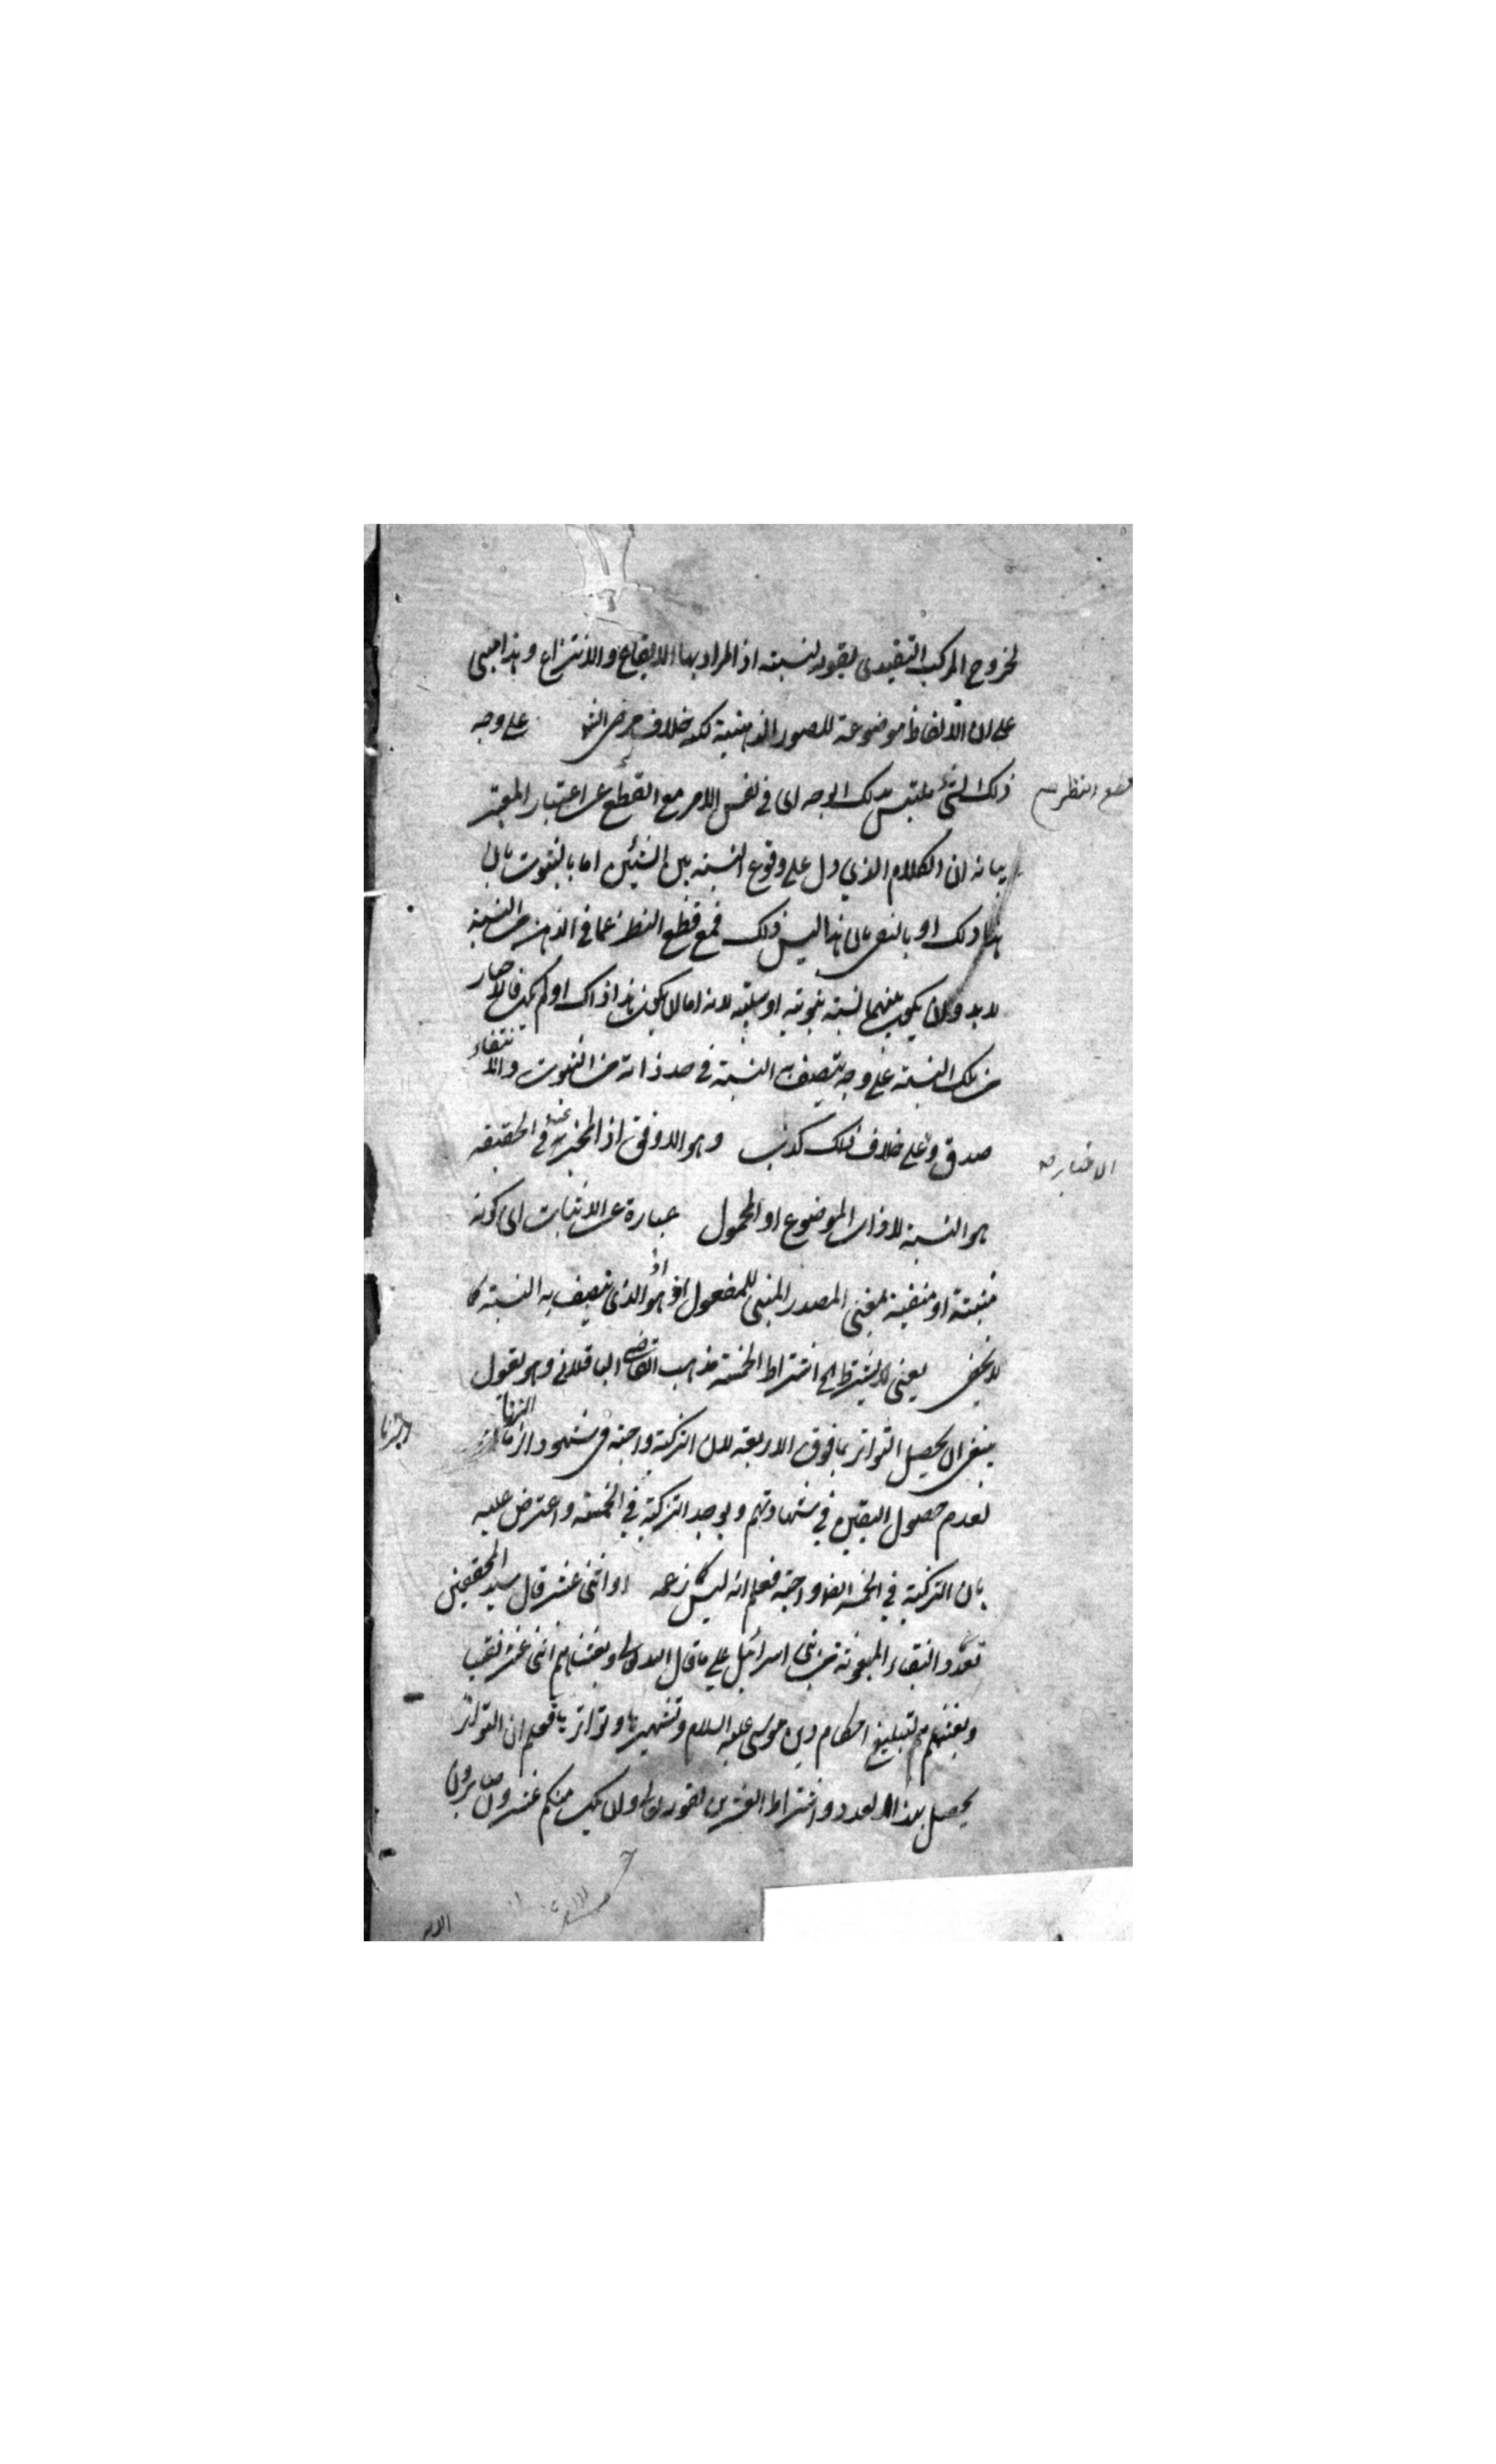 لخروج المركب التقييدى بقوله لنسبته اذ المراد بها الايقاع والانتزاع وهذا مبنى
على ان الالفاظ موضوعة للصور الذهنية كله خلاف على وجه
ذلك الشئ ملتبس بذلك الوجه اى فى نفس الامر مع القطع عن اعتبار المعتبر
قطع النظر
بيانه ان الكلام الذي دل على وقوع النسبة بين الشيئين اما بالثبوت بان
هذا ذلك او بالنفى بان هذا ليس ذلك فمع قطع النظر عما فى الذهن من النسبة
لا بد وان يكون بينهما نسبة ثبوتية او سلبية لانه اما ان يكون هذا ذاك او لم يكن فالاخبار
من تلك النسبة على وجه تتصف به النسبة فى حد ذاته من الثبوت والانتفاء
صدق وعلى خلاف ذلك كذب وهو الاوفق اذ المخبر عنه فى الحقيقه
الاخبار
هو النسبة لا ذات الموضوع او المحمول عبارة عن الاثبات اى كونه
مثبتة او منفية بمعنى المصدر المبنى للمفعول اذ هو الذى تتصف به النسبة كما
لا يخفى يعنى لا يشترط الخ اشتراط الخمسة مذهب القاضى الباقلانى وهو يقول
ينبغى ان يحصل التواتر بما فوق الاربعة لان التزكية واجبة فى شهود الزنا
لعدم حصول اليقين فى شهادتهم ويوجد التزكية في الخمسة واعترض عليه
بان التزكية في الخمسة ايضا واجبة فعلم انه ليس كما زعمه او اثنى عشر قال سيد المحققين
تعدد النقباء المبعوثة من بنى اسرائيل على ما قال الله تعالى وبعثنا منهم اثنى عشر نقيبا
وبعثهم لتبليغ احكام دين موسى عليه السلام وتشهيرها وتواترها فعلم ان التواتر
يحصل بهذا العدد واشتراط العشرين لقوله تعالى وان يكن منكم عشرون صابرون
الايه